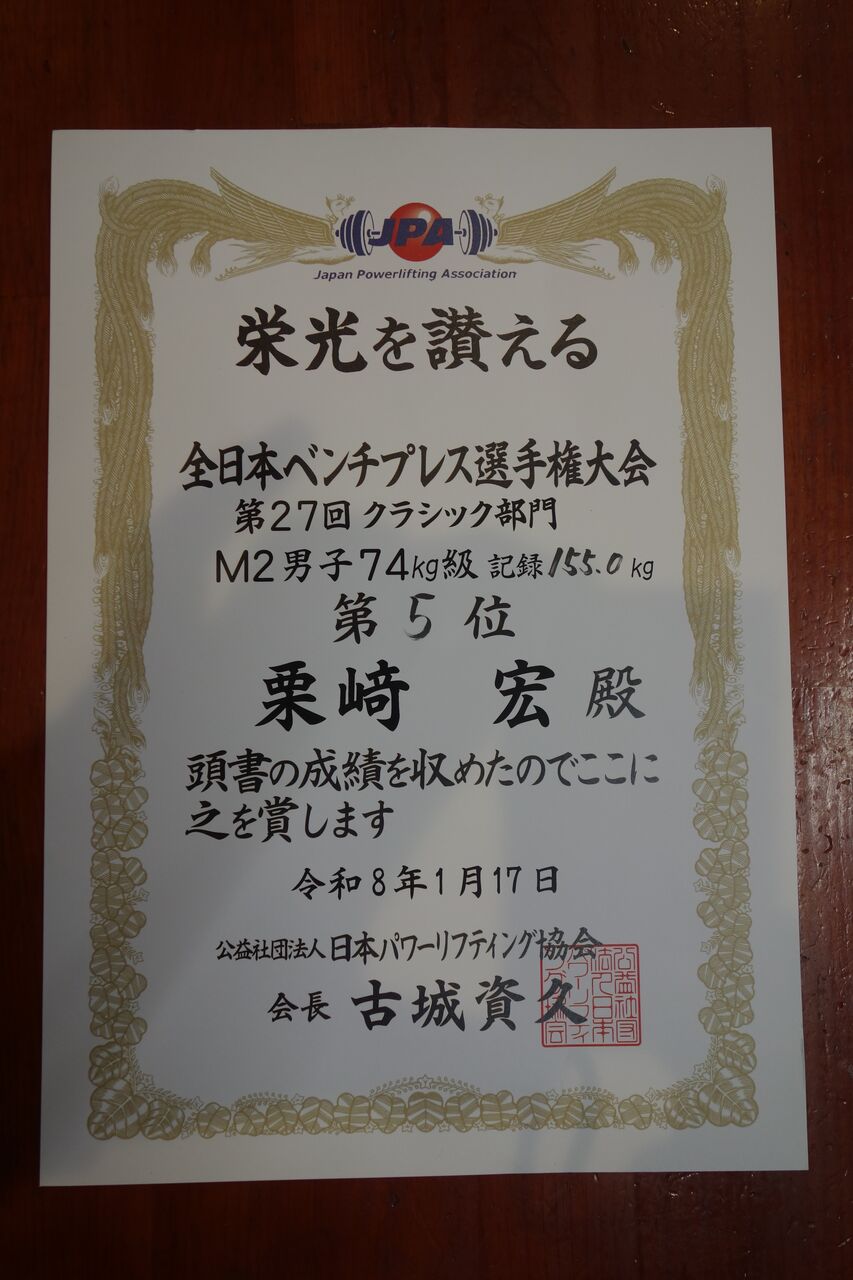 JPA
Japan Powerlifting Association
栄光を讃える
全日本ベンチプレス選手権大会
第27回 クラシック部門
M2男子74kg級 記録155.0kg
第5位
栗﨑 宏 殿
頭書の成績を収めたのでここに
之を賞します
令和8年1月17日
公益社団法人日本パワーリフティング協会
会長 古城資久